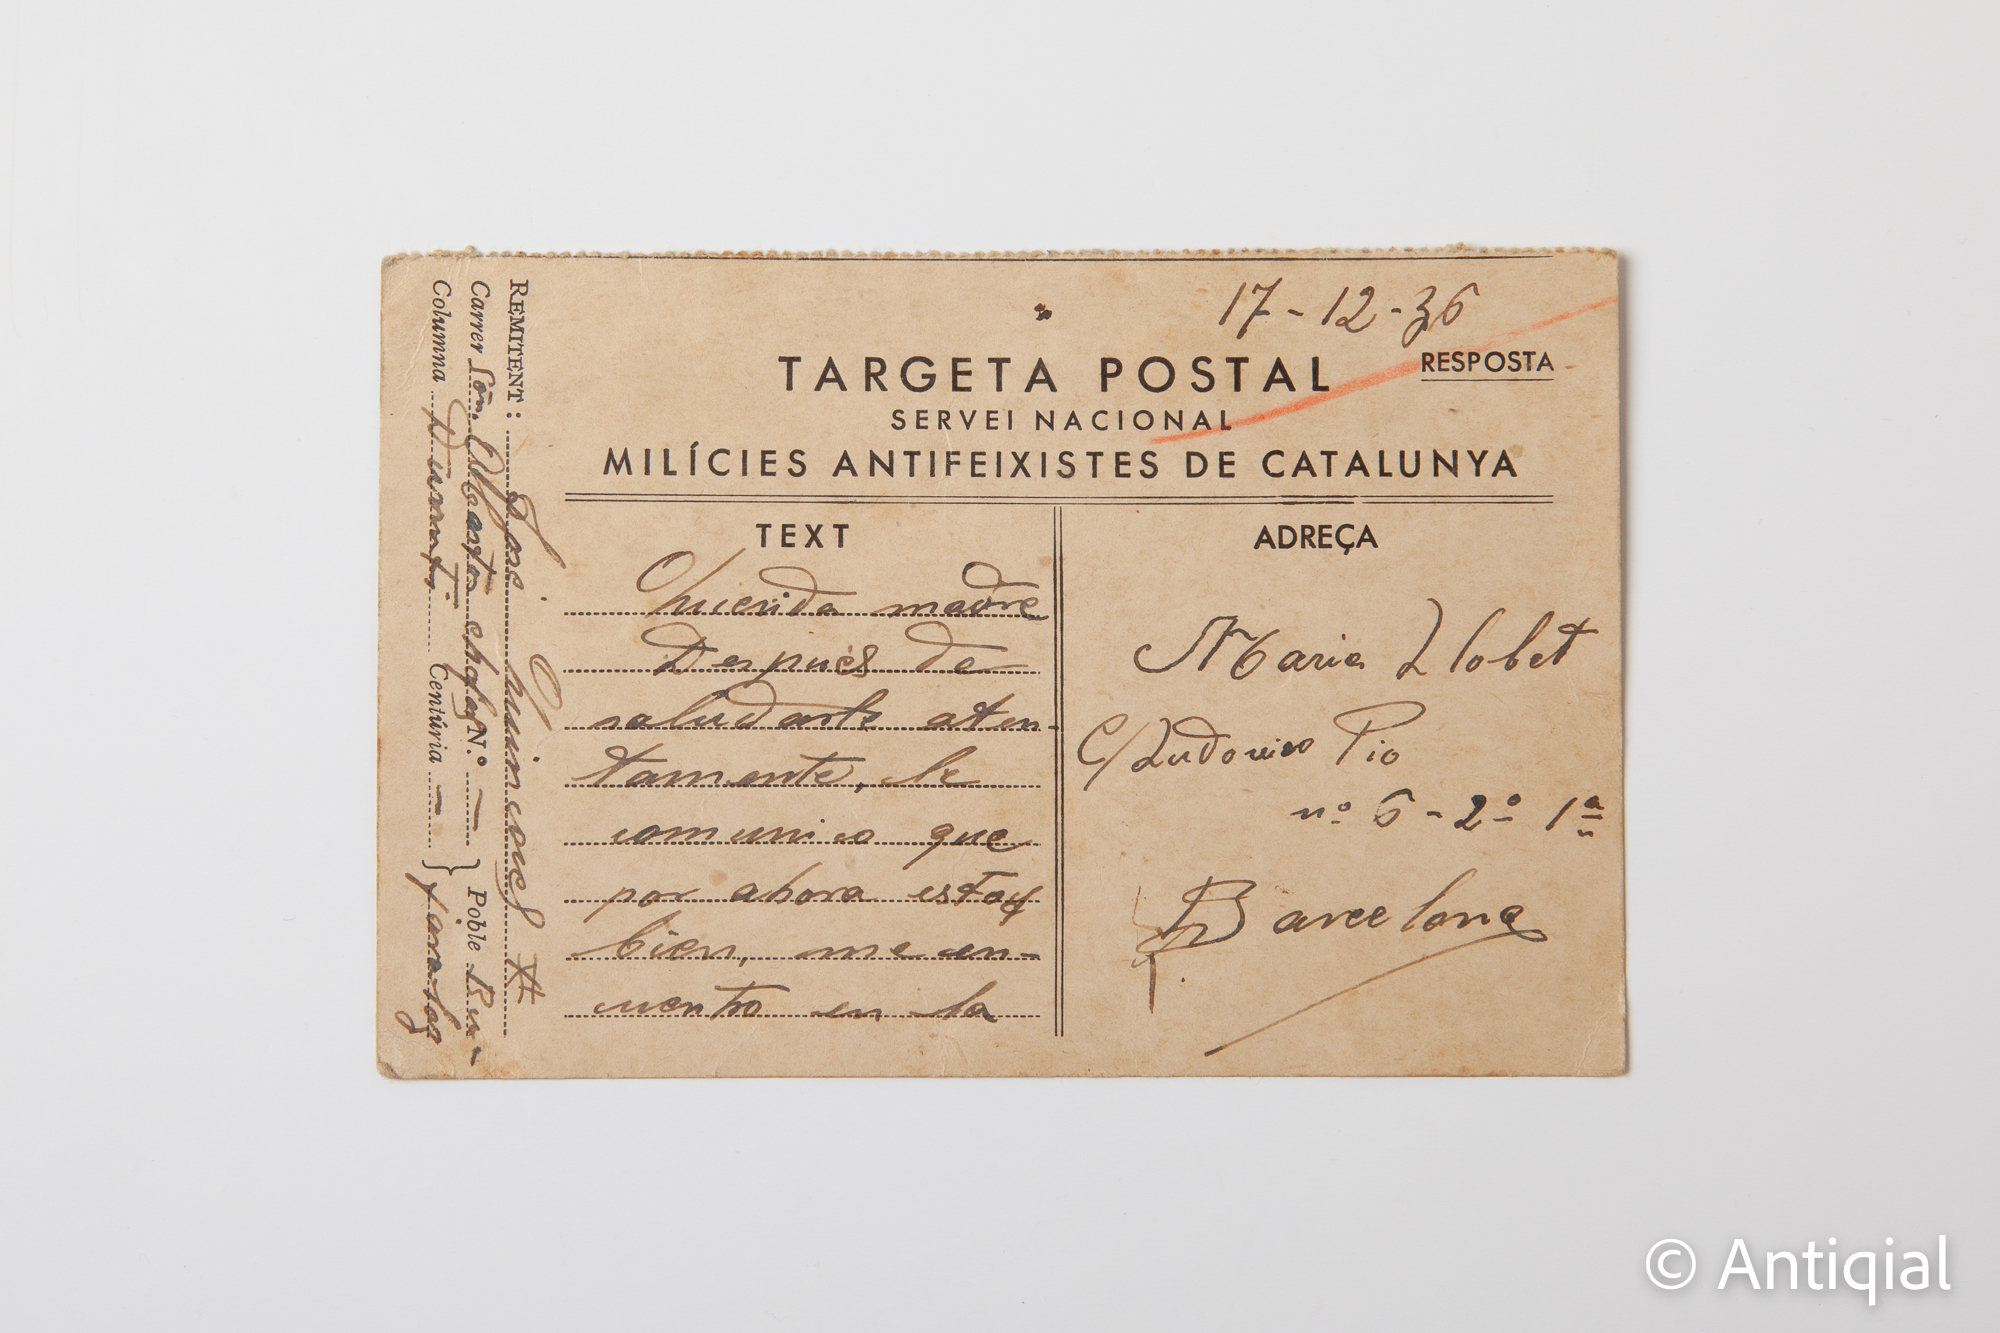 17-12-36
TARGETA POSTAL
RESPOSTA
SERVEI NACIONAL
MILÍCIES ANTIFEIXISTES DE CATALUNYA
TEXT
Querida madre
Después de
saludarte aten-
tamente, le
comunico que
por ahora estoy
bien, me en-
cuentro en la
ADREÇA
Maria Llobet
C/ Ludovico Pio
nº 6 - 2º 1ª
Barcelona
REMITENT: José
Carrer N.º — Poble
Columna Durruti Centúria —
© Antiqial